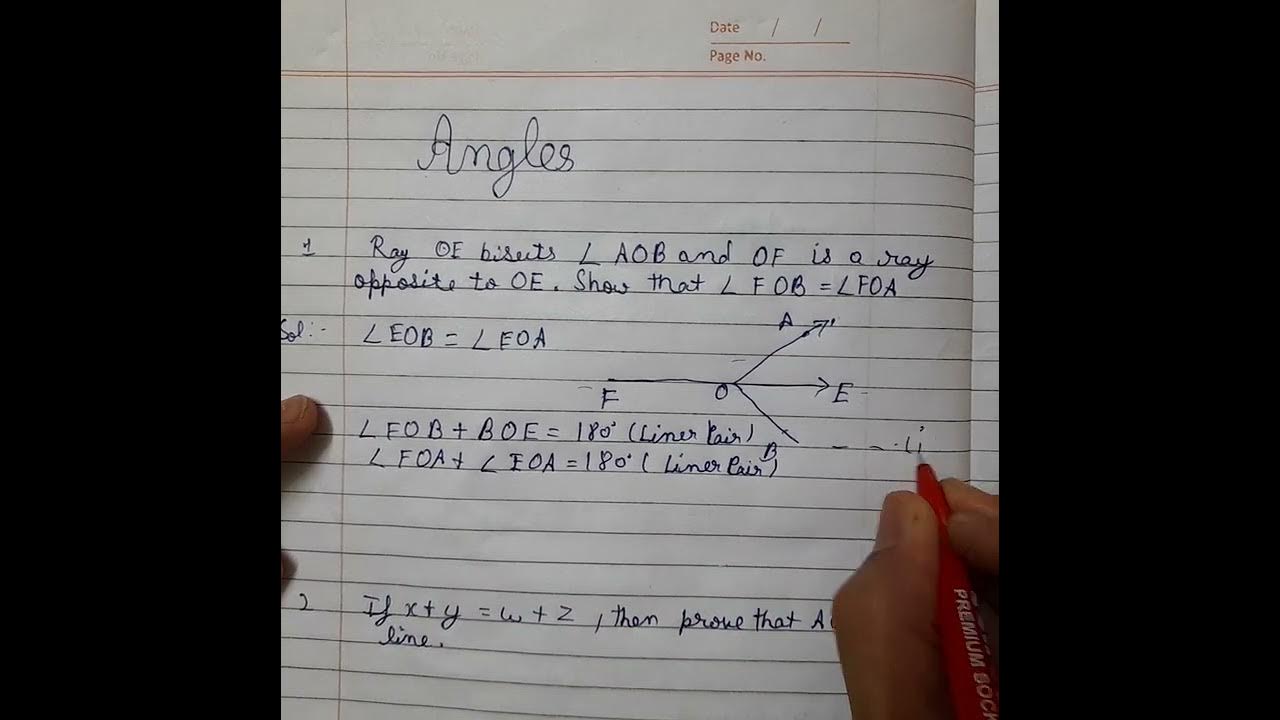 Date / /
Page No.
Angles
1 Ray OE bisects ∠ AOB and OF is a ray
opposite to OE. Show that ∠ FOB = ∠FOA
Sol:- ∠EOB = ∠EOA
A
F O E
∠FOB + BOE = 180° (Liner Pair)
B
∠FOA + ∠EOA = 180° ( Liner Pair)
2 If x + y = w + z , then prove that A
line.
PREMIUM